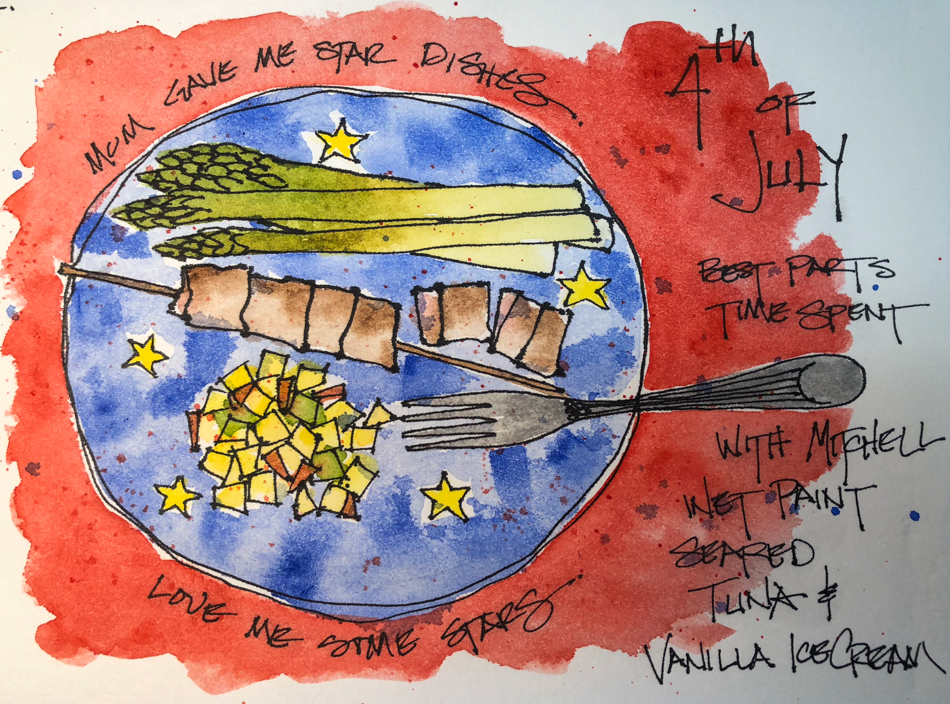 MOM GAVE ME STAR DISHES
4TH
OF
JULY
BEST PARTS
TIME SPENT
WITH MITCHELL
WET PAINT
SEARED
TUNA &
VANILLA ICE CREAM
LOVE ME SOME STARS